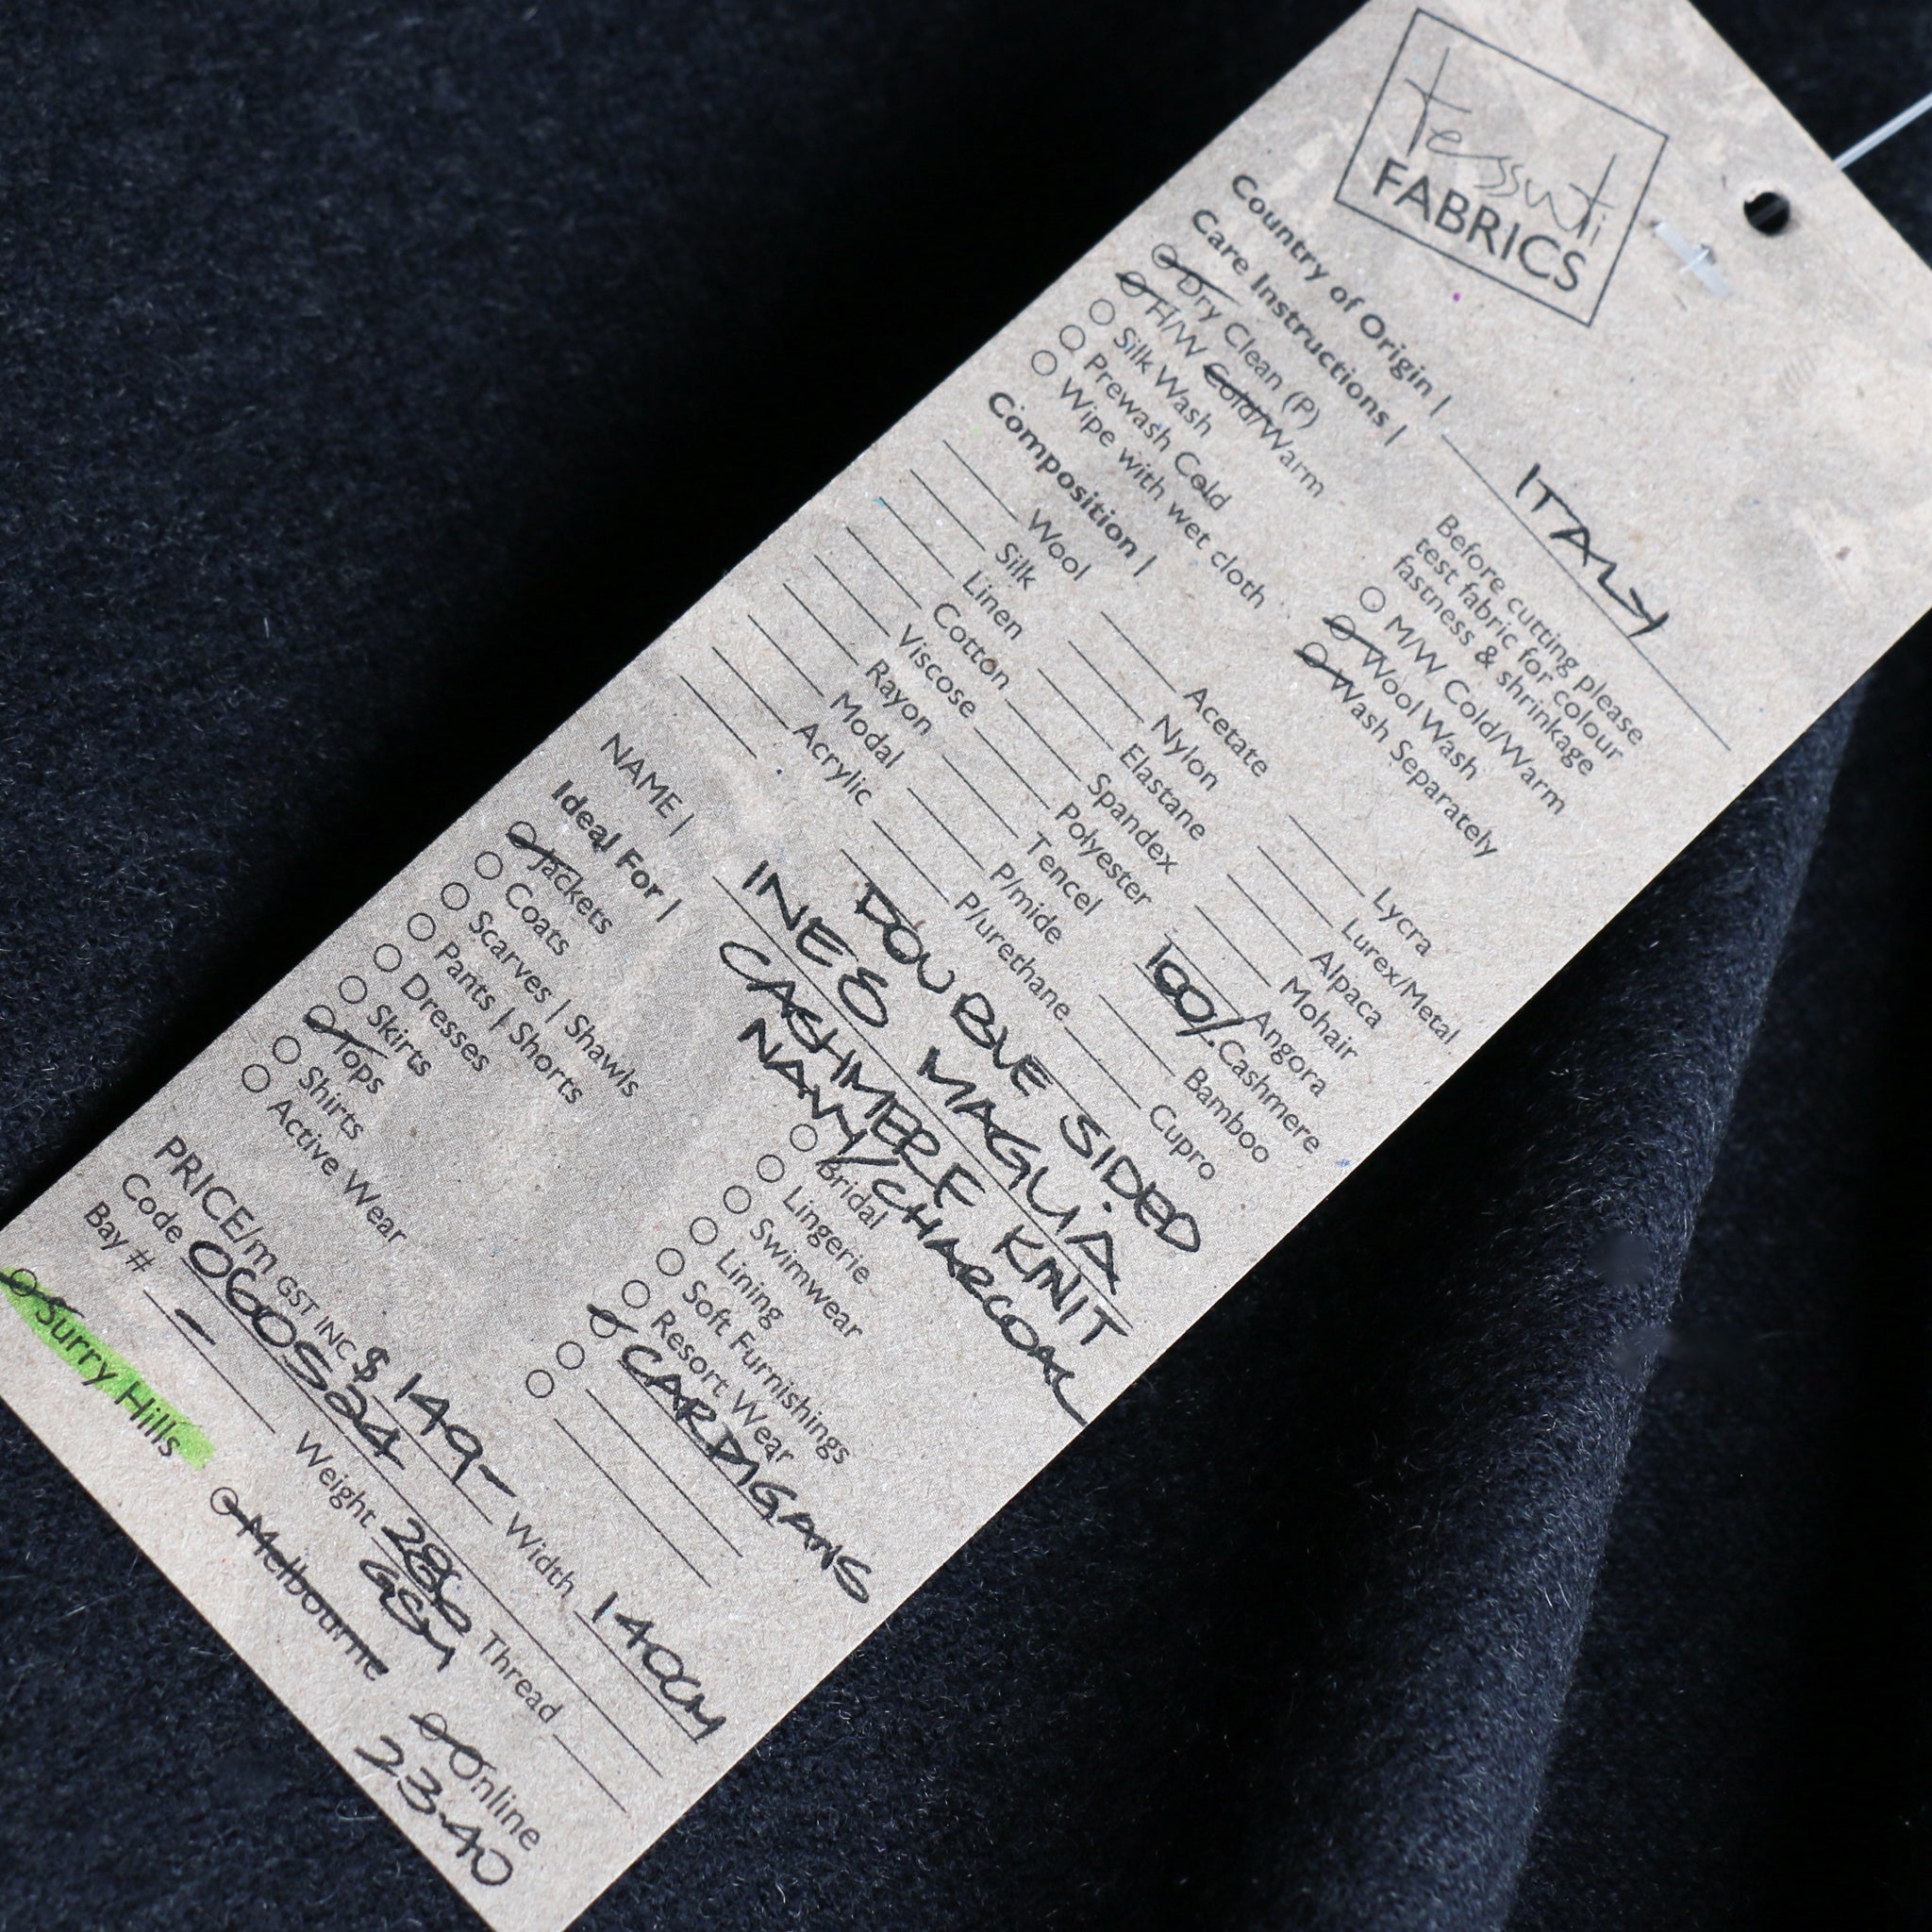 tessuti
FABRICS
Country of Origin | ITALY
Care Instructions |
Before cutting please
test fabric for colour
fastness & shrinkage
Dry Clean (P)
H/W Cold/Warm
Silk Wash
Prewash Cold
Wipe with wet cloth
M/W Cold/Warm
Wool Wash
Wash Separately
Composition |
Wool
Silk
Linen
Cotton
Viscose
Rayon
Modal
Acrylic
Acetate
Nylon
Elastane
Spandex
Polyester
Tencel
P/mide
P/urethane
Lycra
Lurex/Metal
Alpaca
Mohair
Angora
100% Cashmere
Bamboo
Cupro
NAME |
DOUBLE SIDED
MAGLIA
CASHMERE KNIT
NAVY/CHARCOAL
Ideal For |
Jackets
Coats
Scarves | Shawls
Pants | Shorts
Dresses
Skirts
Tops
Shirts
Active Wear
Bridal
Lingerie
Swimwear
Lining
Soft Furnishings
Resort Wear
CARDIGANS
PRICE/m GST INC $ 149- Width 140CM
Code Weight GSM Thread
Bay # -
Surry Hills Melbourne Online
23-40